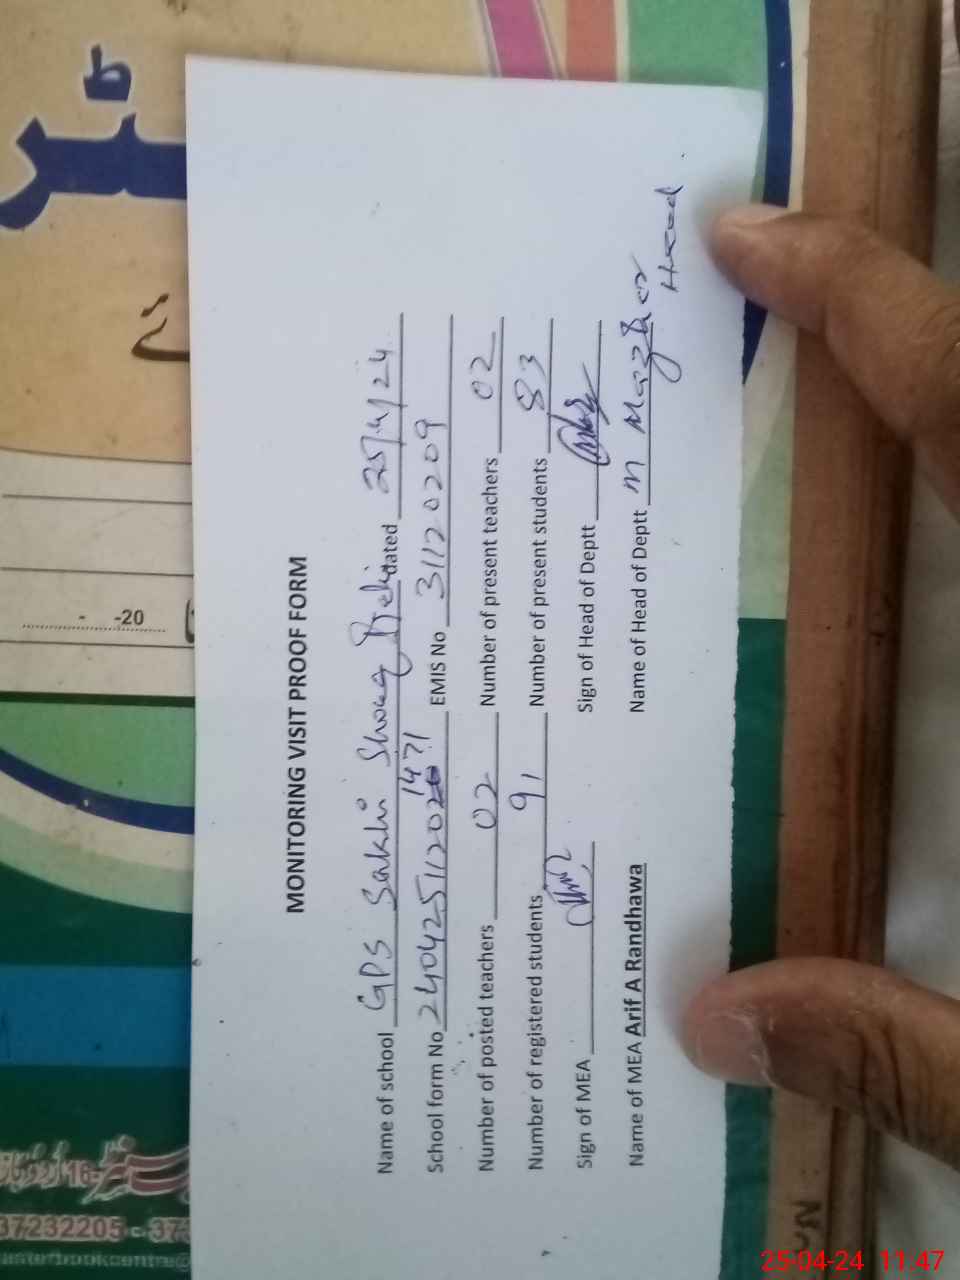 MONITORING VISIT PROOF FORM
Name of school GPS Sakhi Shouq Elahi dated 25/4/24
School form No 24042511202 1471 EMIS No 31120209
Number of posted teachers 02 Number of present teachers 02
Number of registered students 91 Number of present students 83
Sign of MEA Sign of Head of Deptt
Name of MEA Arif A Randhawa Name of Head of Deptt M Mazhar
Head
- -20
37232205 - 37
25-04-24 11:47